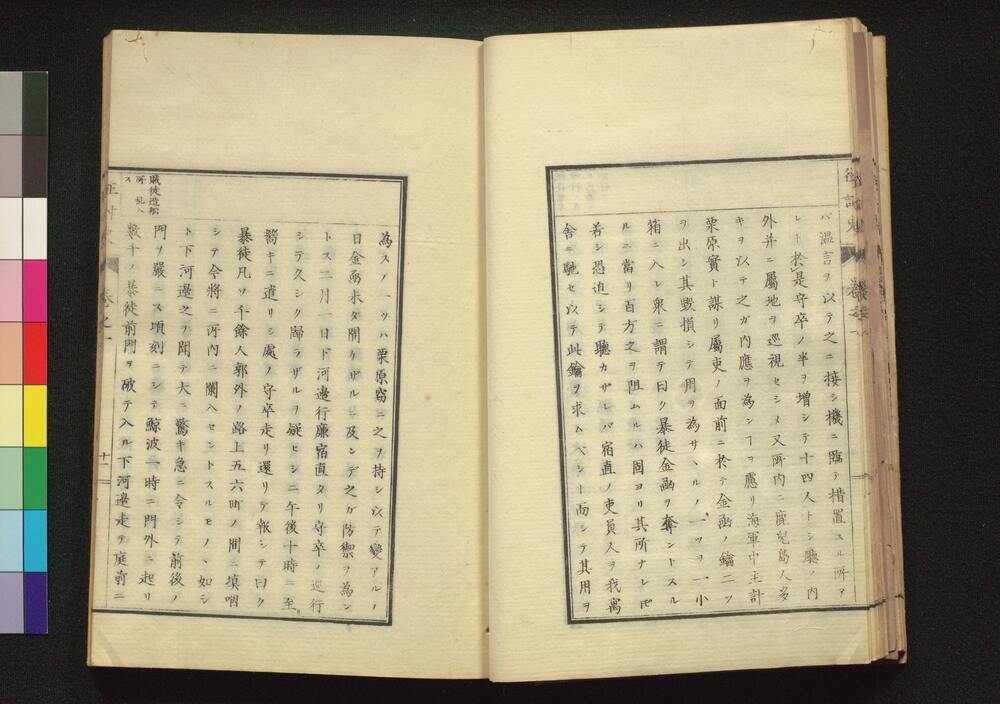 バ温言ヲ以テ之ニ接シ機ニ臨テ措置スル所ア
レト」於是守卒ノ半ヲ増シテ十四人トシ廳ノ内
外并ニ屬地ヲ巡視セシメ又所内ニ鹿兒島人多
キヲ以テ之ガ内應ヲ為シヿヲ慮リ海軍中主計
栗原實ト謀リ屬吏ノ面前ニ於テ金凾ノ鑰二ツ
ヲ出シ其毀損シテ用ヲ為サヽルノ一ツヲ一小
箱ニ入レ衆ニ謂テ曰ク暴徒金凾ヲ奪ントスル
ルニ當リ百方之ヲ阻ムルハ固ヨリ其所ナレ𪜈
若シ恐迫シテ聽カザレバ宿直ノ吏員人ヲ我寓
舎ニ馳セ以テ此鑰ヲ求ムベシト而シテ其用ヲ
為スノ一ツハ栗原窃ニ之ヲ持シ以テ變アルノ
日金凾未タ開リザルニ及ンデ之ガ防禦ヲ為ン
トス二月一日下河邉行廉宿直タリ守卒ノ巡行
シテ久シク歸ラザルヲ疑ヒシニ午後十時ニ至
嚮キニ遣リシ處ノ守卒走リ還リテ報シテ曰ク
暴徒凡ソ千餘人郭外ノ路上五六町ノ間ニ填咽
シテ今將ニ所内ニ闌入セントスルモノヽ如シ
ト下河邉之ヲ聞テ大ニ驚キ急ニ令シテ前後ノ
門ヲ嚴ニス頃刻ニシテ鯨波一時ニ門外ニ起リ
數千ノ暴徒前門ヲ破テ入ル下河邉走テ庭前ニ
賊徒造舩
所乱入
ス
卷之一
十二